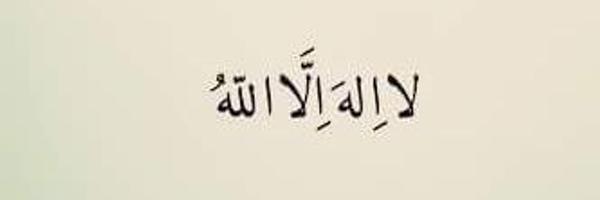 لا اِلهَ اِلَّا اللهُ